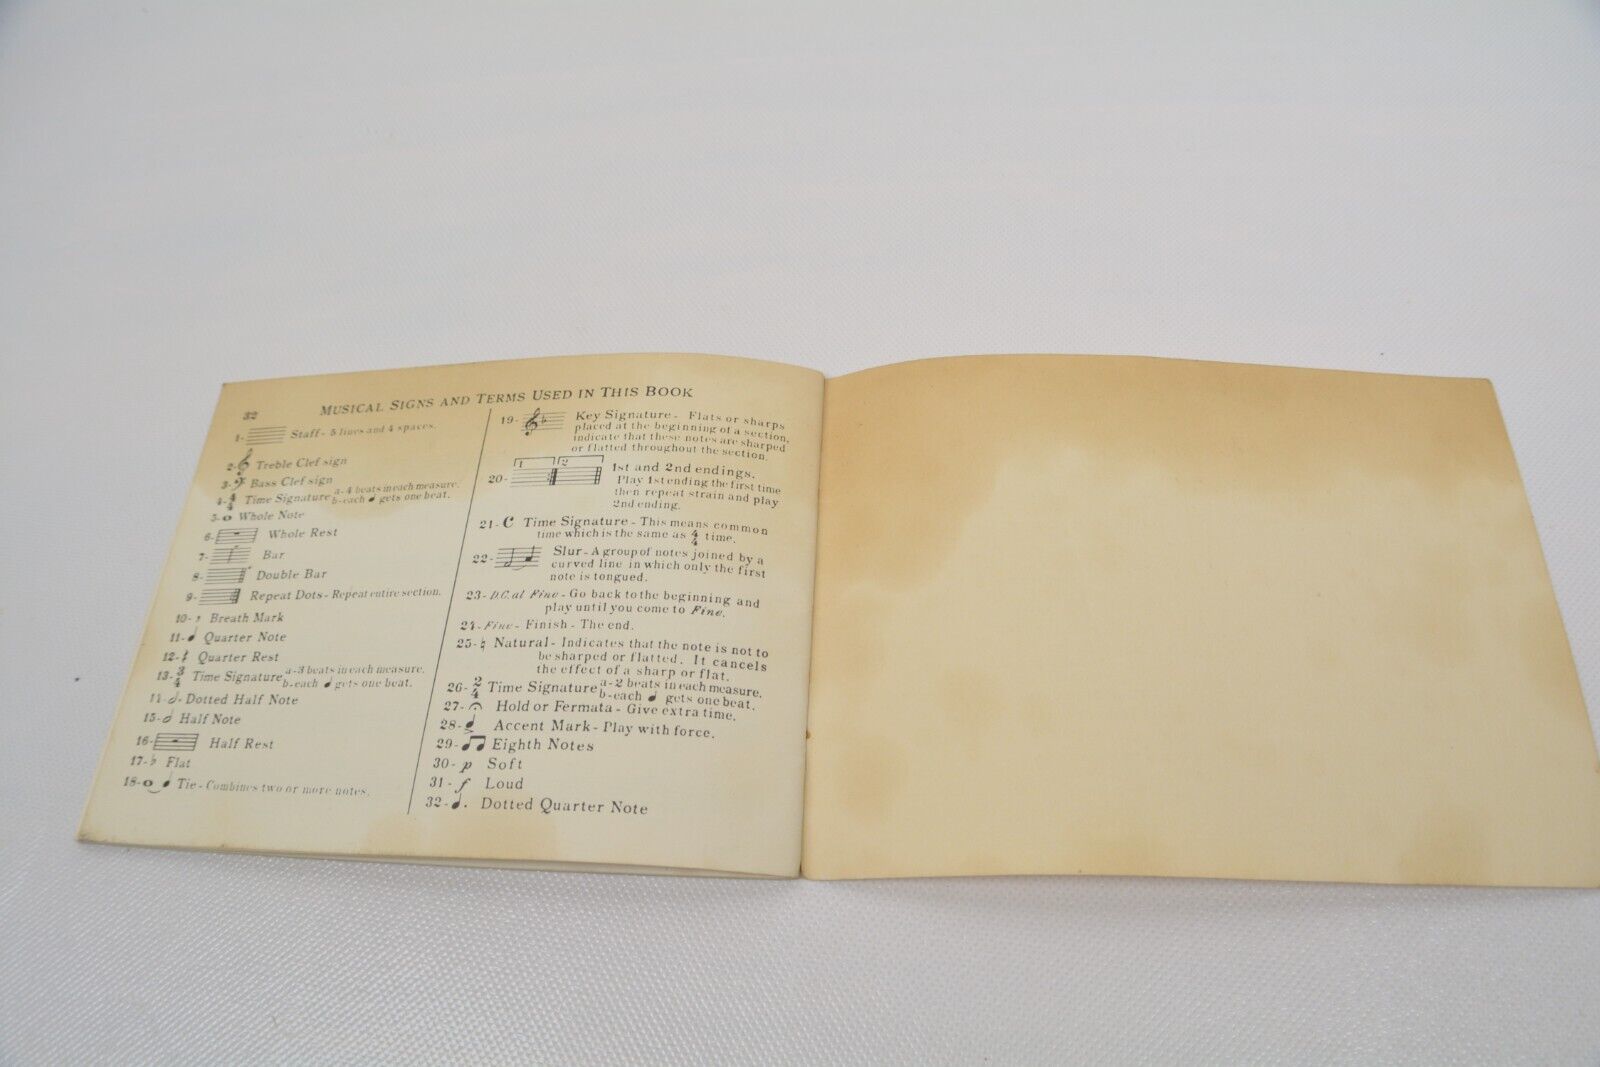 32
MUSICAL SIGNS AND TERMS USED IN THIS BOOK
1- Staff - 5 lines and 4 spaces.
2- Treble Clef sign
3- Bass Clef sign
4- 4/4 Time Signature a-4 beats in each measure.
b-each gets one beat.
5- Whole Note
6- Whole Rest
7- Bar
8- Double Bar
9- Repeat Dots - Repeat entire section.
10- , Breath Mark
11- Quarter Note
12- Quarter Rest
13- 3/4 Time Signature a-3 beats in each measure.
b-each gets one beat.
14- Dotted Half Note
15- Half Note
16- Half Rest
17- ♭ Flat
18- Tie - Combines two or more notes.
19- Key Signature - Flats or sharps
placed at the beginning of a section,
indicate that these notes are sharped
or flatted throughout the section.
20- 1 2 1st and 2nd endings.
Play 1st ending the first time
then repeat strain and play
2nd ending.
21- C Time Signature - This means common
time which is the same as 4/4 time.
22- Slur - A group of notes joined by a
curved line in which only the first
note is tongued.
23- D.C. al Fine - Go back to the beginning and
play until you come to Fine.
24- Fine - Finish - The end.
25- ♮ Natural - Indicates that the note is not to
be sharped or flatted. It cancels
the effect of a sharp or flat.
26- 2/4 Time Signature a-2 beats in each measure.
b-each gets one beat.
27- Hold or Fermata - Give extra time.
28- Accent Mark - Play with force.
29- Eighth Notes
30- p Soft
31- f Loud
32- Dotted Quarter Note